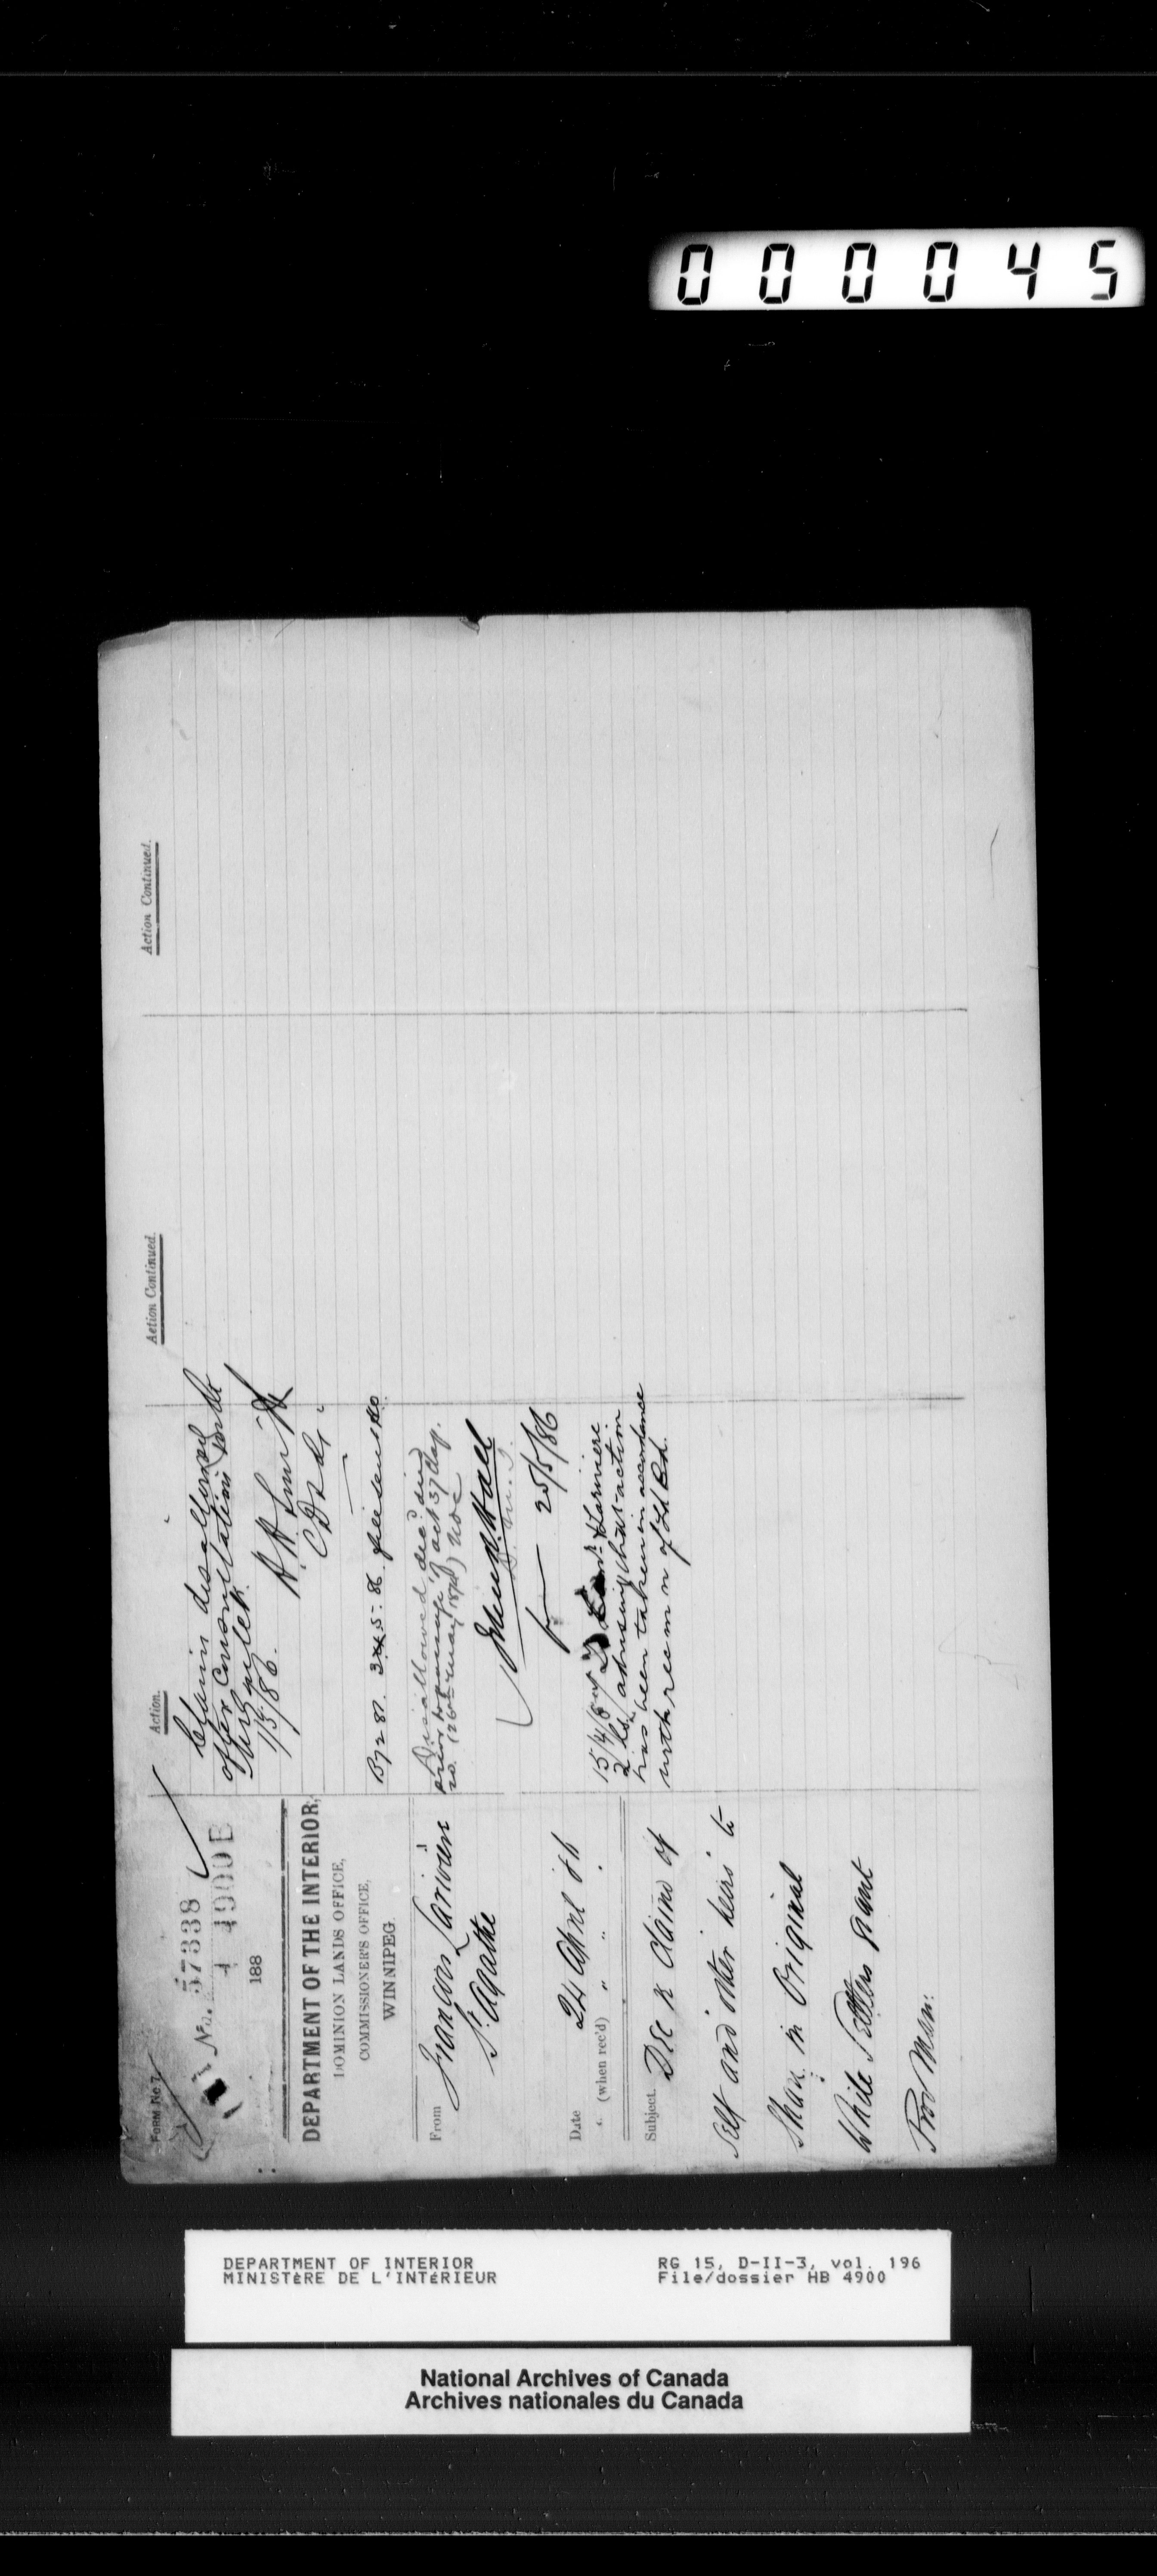 000045
FORM No 7
No. 57338
4900 B
188
DEPARTMENT OF THE INTERIOR,
DOMINION LANDS OFFICE,
COMMISSIONER'S OFFICE,
WINNIPEG.
From Francois Lariviere
St Agathe
Date 24 April 86
" (when rec'd) " " " .
Subject. Dec re Claim of
self and other heirs to
Share in Original
White Settlers grant
Prov Man.
Action.
Claim disallowed
after Consultation
1/5/86.
B 7287. 5. 86.
Disallowed dec'd died
prior to passage of act 37 Vic
20. (26th May 1874)
25/5/86
15/4/8 Lariviere
advising that action
has been taken in accordance
with recm n of Ld Bd.
Action Continued.
Action Continued.
DEPARTMENT OF INTERIOR
MINISTÈRE DE L'INTÉRIEUR
RG 15, D-II-3, vol. 196
File/dossier HB 4900
National Archives of Canada
Archives nationales du Canada